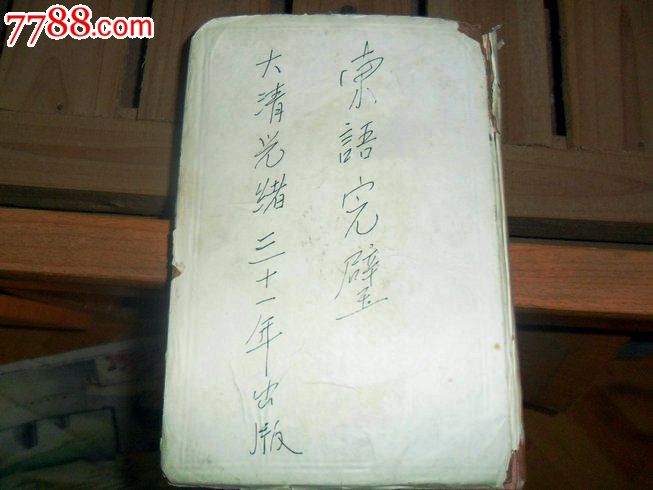 7788.com
東語完璧
大清光緒三十一年出版